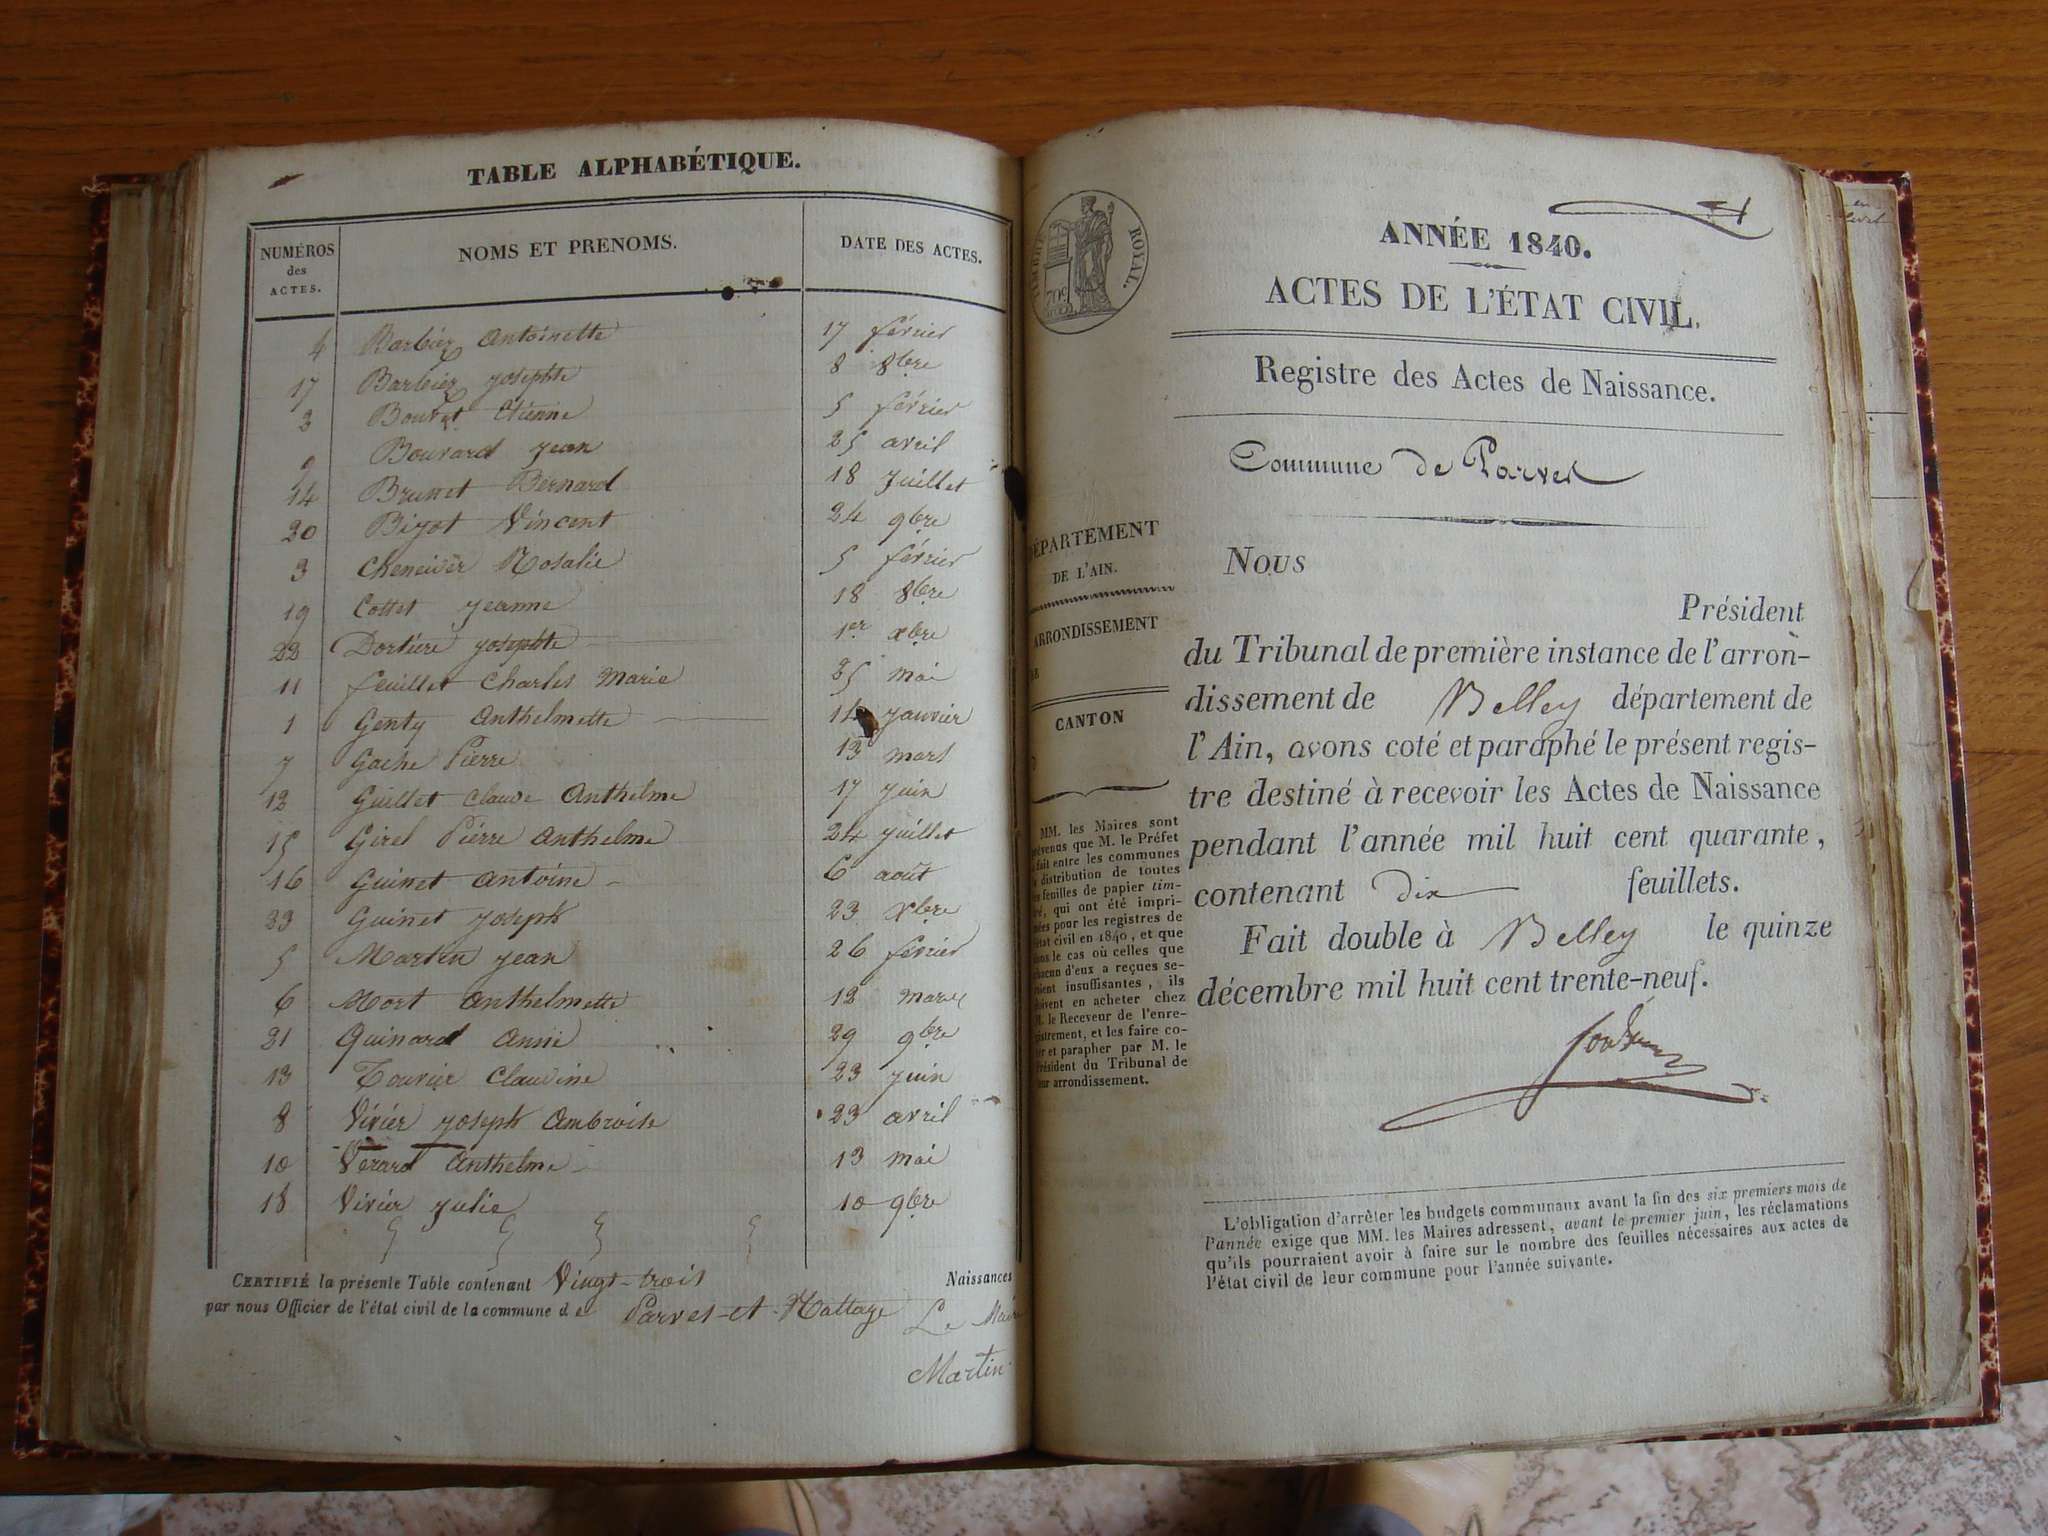 TABLE ALPHABÉTIQUE.
NUMÉROS des ACTES. NOMS ET PRENOMS. DATE DES ACTES.
4 Barbier Antoinette 17 février
17 Barbier Josephte 8 8bre
2 Bouvet Etienne 5 février
9 Bouvard Jean 25 avril
14 Brunet Bernard 18 Juillet
20 Bizot Vincent 24 9bre
3 Cheneivier Rosalie 5 février
19 Cottet Jeanne 18 8bre
22 Dortière Josephte 1er xbre
11 feuillet Charles Marie 25 mai
1 Genty Anthelmette 14 janvier
7 Gache Pierre 13 mars
12 Guillet Claude Anthelme 17 Juin
15 Girel Pierre Anthelme 24 Juillet
16 Guinet Antoine 6 août
23 Guinet Joseph 23 xbre
5 Martin Jean 26 février
6 Mort Anthelmette 12 mars
21 Quinard 29 9bre
13 Touvier Claudine 23 Juin
8 Vivier Joseph Ambroise 23 avril
10 Verard Anthelme 13 mai
18 Vivier Julie 10 9bre
CERTIFIÉ la présente Table contenant Vingt-trois Naissances
par nous Officier de l'état civil de la commune de Parves-et-Nattage Le Maire
Martin
ROYAL.
70c
1
ANNÉE 1840.
ACTES DE L'ÉTAT CIVIL.
Registre des Actes de Naissance.
Commune de Parves
DÉPARTEMENT
DE L'AIN.
ARRONDISSEMENT
CANTON
MM. les Maires sont
prévenus que M. le Préfet
a fait entre les communes
la distribution de toutes
les feuilles de papier tim-
bré, qui ont été impri-
mées pour les registres de
l'état civil en 1840, et que
dans le cas où celles que
chacun d'eux a reçues se-
raient insuffisantes, ils
doivent en acheter chez
M. le Receveur de l'enre-
gistrement, et les faire co-
ter et parapher par M. le
Président du Tribunal de
leur arrondissement.
Nous
Président
du Tribunal de première instance de l'arron-
dissement de Belley département de
l'Ain, avons coté et paraphé le présent regis-
tre destiné à recevoir les Actes de Naissance
pendant l'année mil huit cent quarante,
contenant dix feuillets.
Fait double à Belley le quinze
décembre mil huit cent trente-neuf.
L'obligation d'arrêter les budgets communaux avant la fin des six premiers mois de
l'année exige que MM. les Maires adressent, avant le premier juin, les réclamations
qu'ils pourraient avoir à faire sur le nombre des feuilles nécessaires aux actes de
l'état civil de leur commune pour l'année suivante.